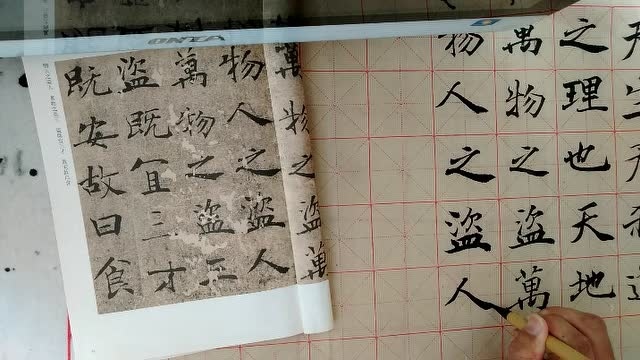 之理也天地
萬物之盜萬
物人之盜人
萬物之盜萬
物人之盜人
萬物之盜三
盜既宜三才
既安故曰食